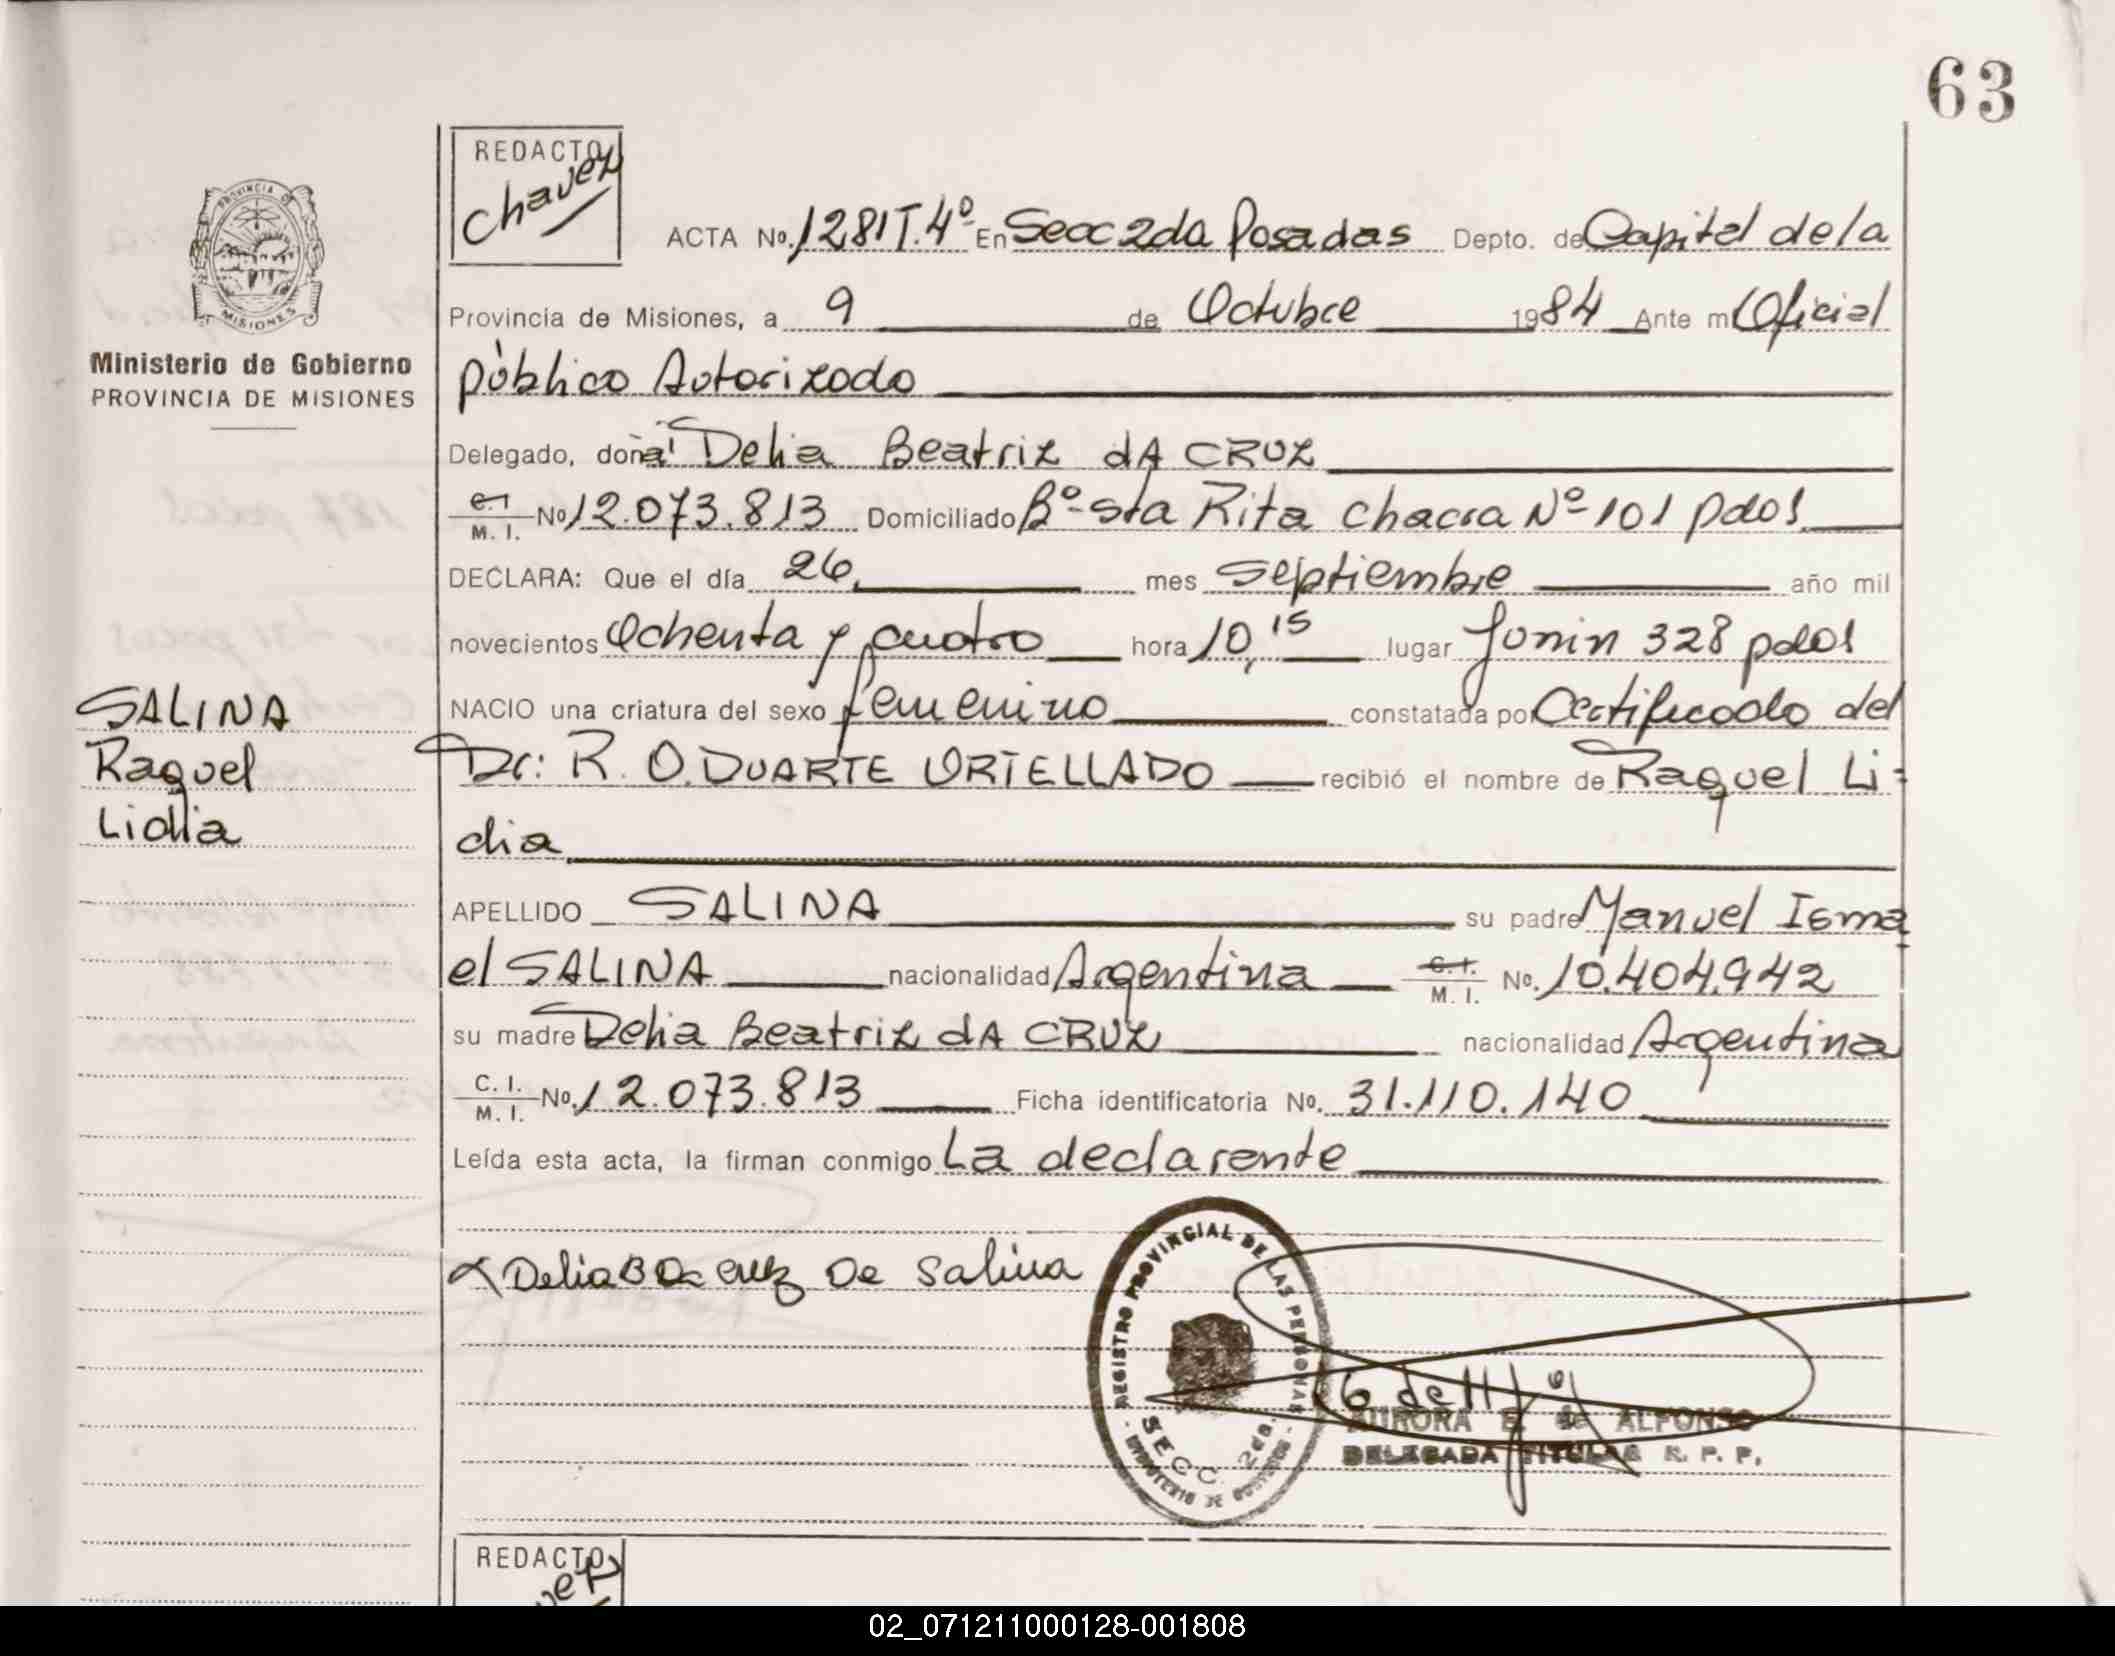 63
REDACTO
Chavez
ACTA No. 1281 T.4º En Secc 2da Posadas Depto. de Capital de la
PROVINCIA DE
MISIONES
Provincia de Misiones, a 9 de Octubre 1984 Ante mi Oficial
Ministerio de Gobierno
PROVINCIA DE MISIONES
público Autorizado
Delegado, doña Delia Beatriz dA CRUZ
C.I. M. I. No 12.073.813 Domiciliado Bº Sta Rita Chacra Nº 101 pdas
DECLARA: Que el día 26 mes Septiembre año mil
novecientos Ochenta y cuatro hora 10,15 lugar Junin 328 pdas
NACIO una criatura del sexo femenino constatada por Certificado del
SALINA
Raquel
Lidia
Dr: R. O. DUARTE URTELLADO recibió el nombre de Raquel Li=
dia
APELLIDO SALINA su padre Manuel Isma
el SALINA nacionalidad Argentina C.I. M. I. No. 10.404.942
su madre Delia Beatriz dA CRUZ nacionalidad Argentina
C. I. M. I. No. 12.073.813 Ficha identificatoria No. 31.110.140
Leída esta acta, la firman conmigo La declarante
Delia B Da Cruz De Salina
REGISTRO PROVINCIAL DE LAS PERSONAS
SECC. 2da.
MINISTERIO DE GOBIERNO
AURORA E. de ALFONSO
DELEGADA TITULAR R. P. P.
REDACTO
02_071211000128-001808